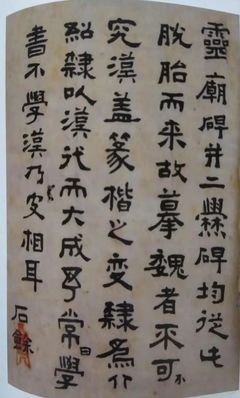 靈廟碑并二爨碑均從此
脫胎而來故摹魏者不可不
究漢盖篆楷之变隸為介
紹隸以漢代而大成予常曰學
書不學漢乃皮相耳
石餘